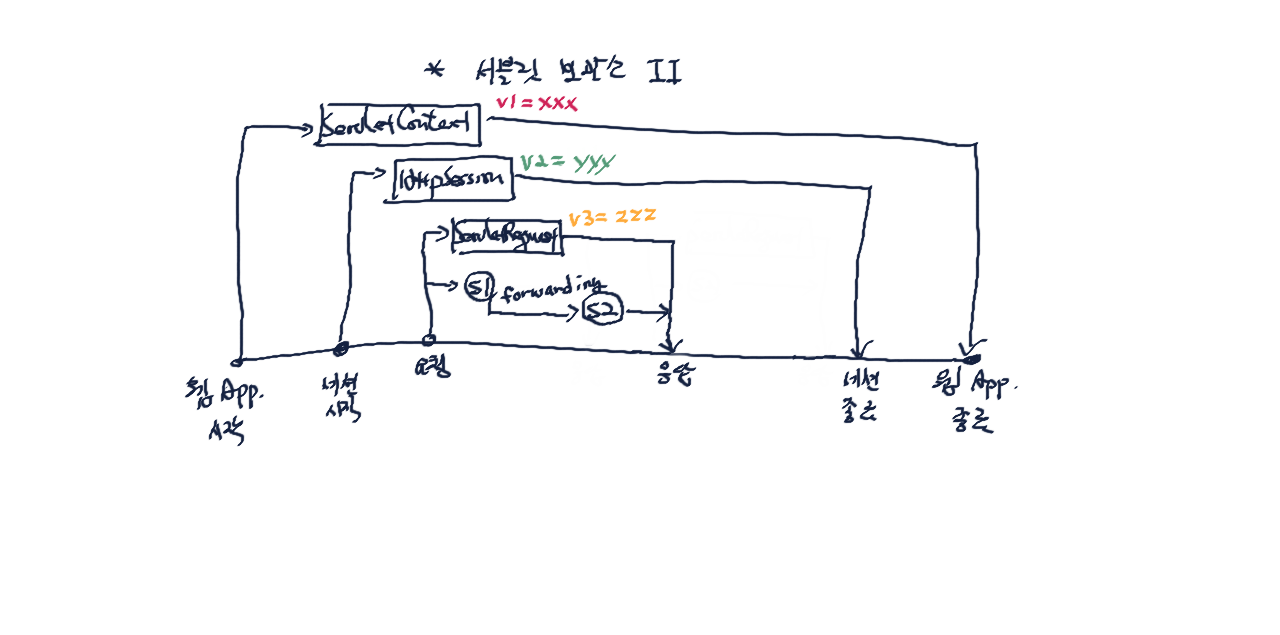 * 서블릿 보관소 II
v1 = xxx
ServletContext
v2 = yyy
HttpSession
v3 = zzz
ServletRequest
S1
forwarding
S2
웹 App.
시작
세션
시작
요청
응답
세션
종료
웹 App.
종료